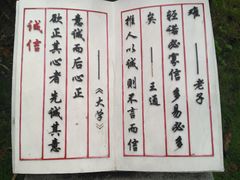 诚信
欲正其心者 先诚其意
意诚而后心正
——《大学》
推人以诚 則不言而信
矣 ——王通
轻诺必寡信 多易必多
难 ——老子